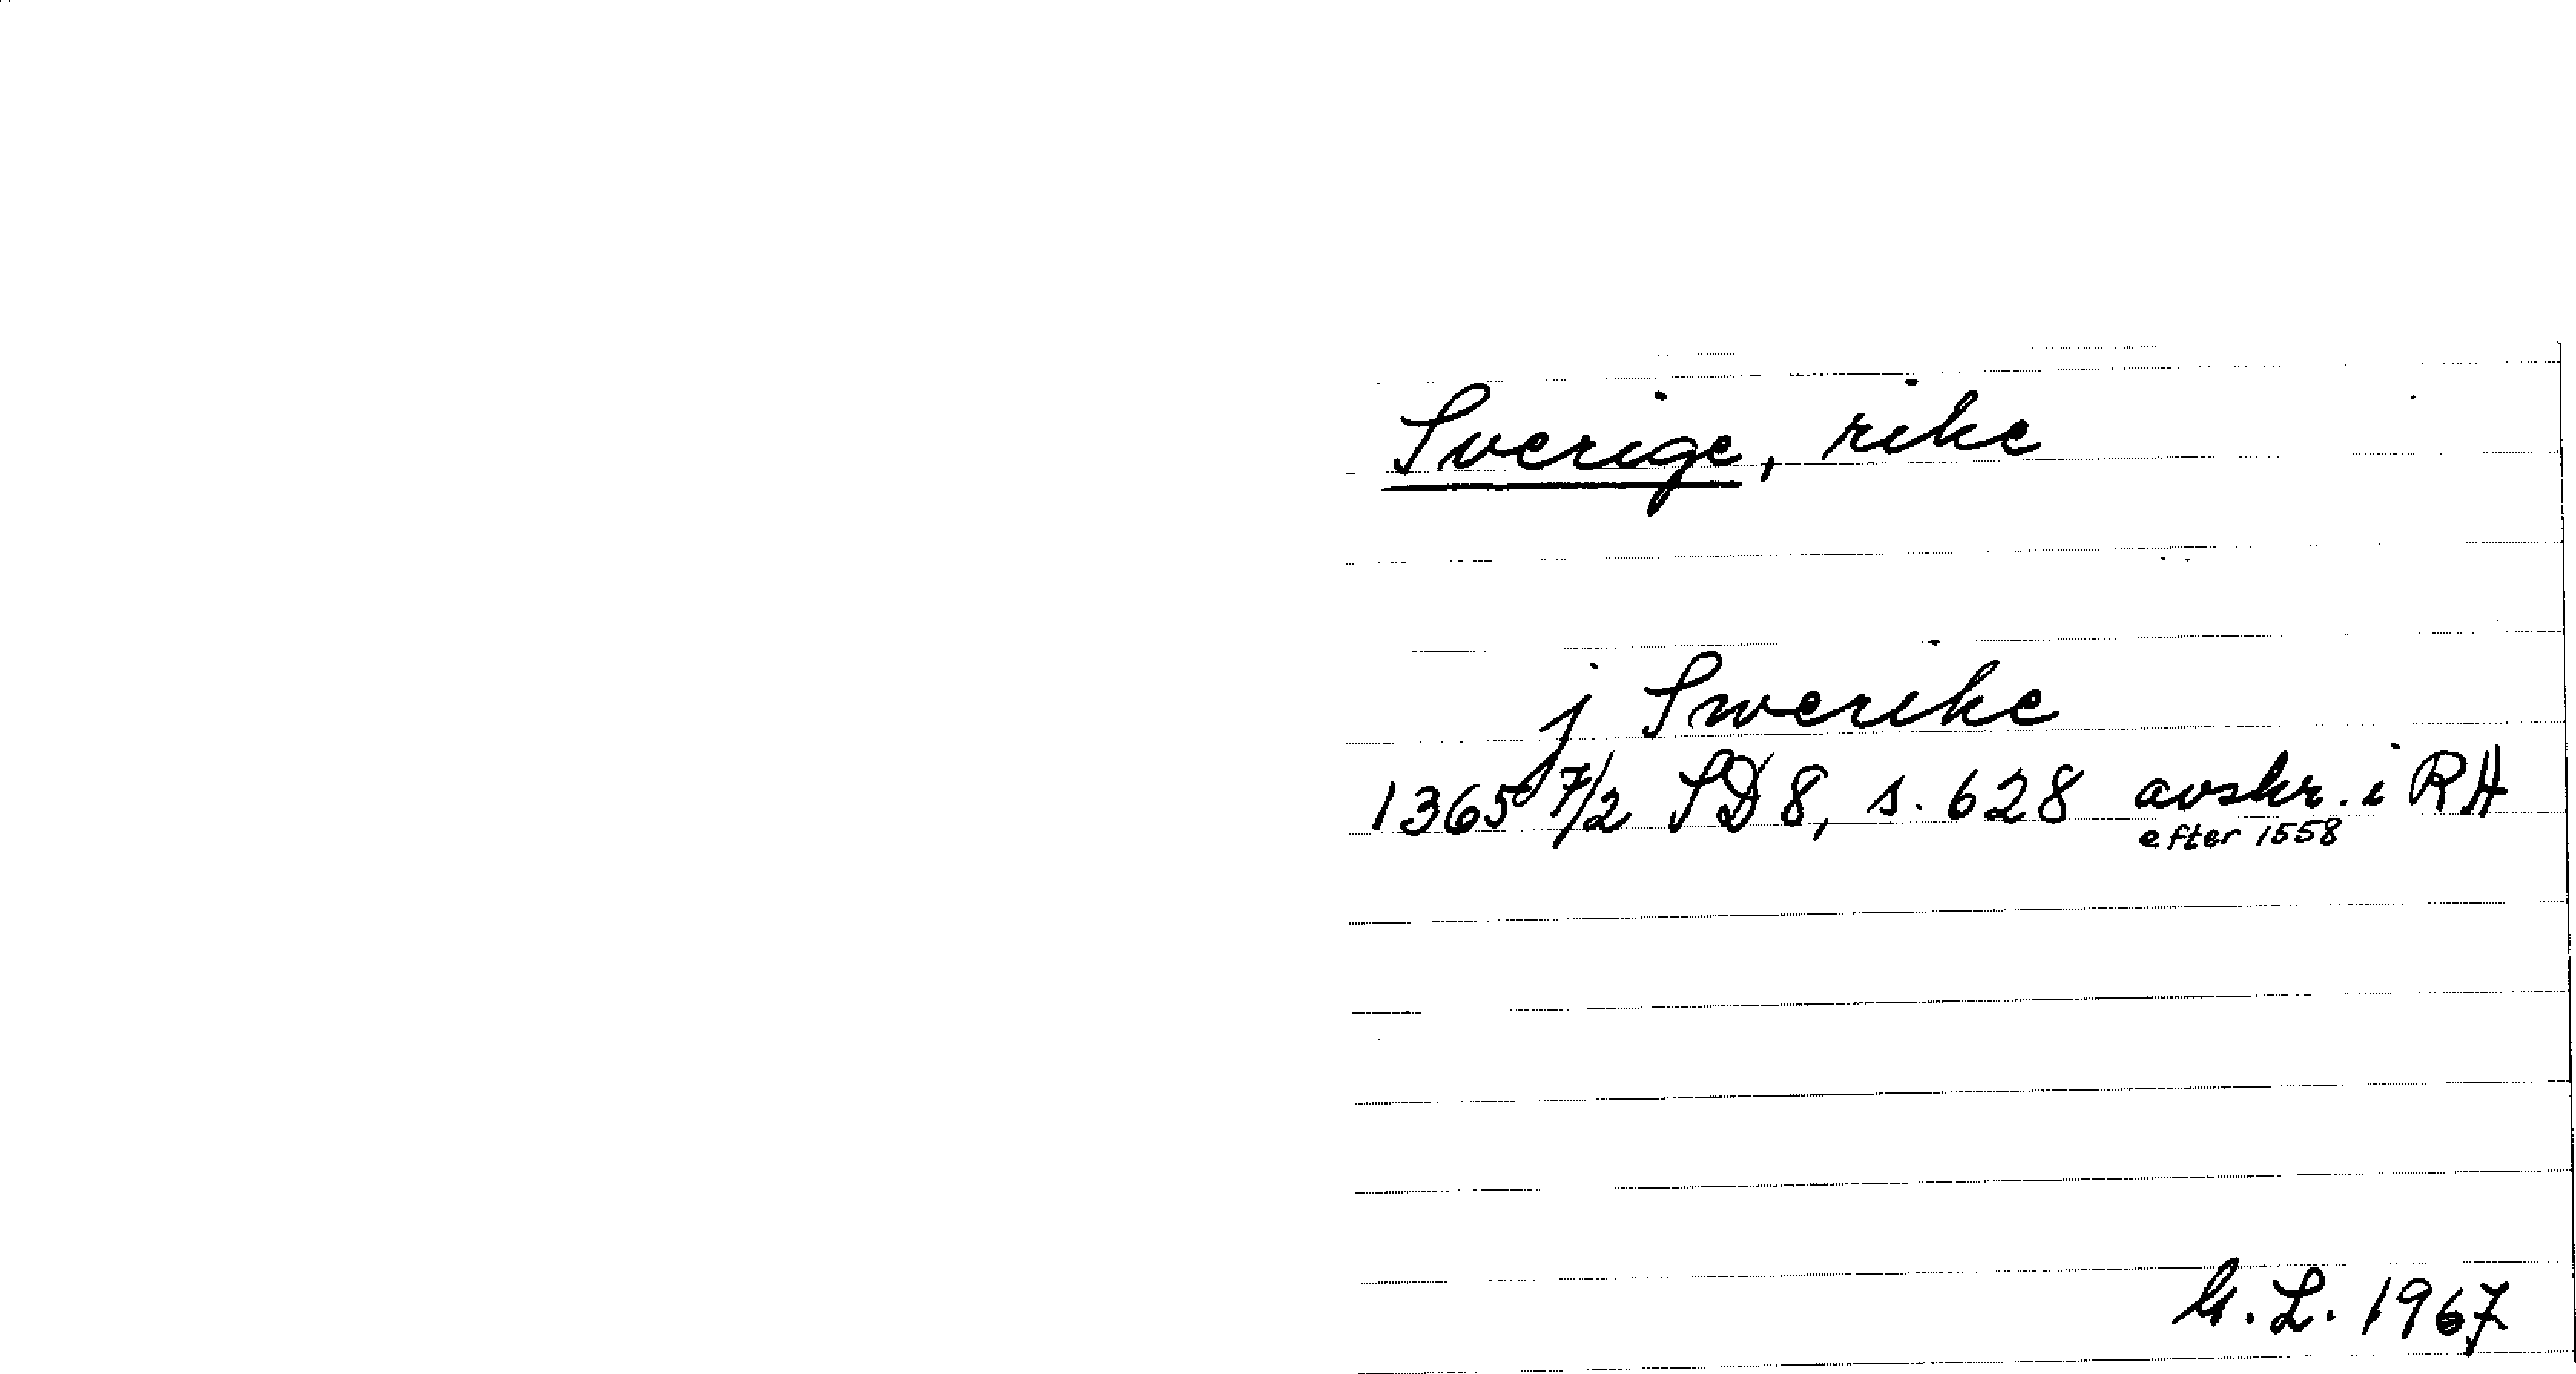 Sverige, rike
j Swerike
1365 7/2 SD 8, s. 628 avskr. i RA
efter 1558
G. L. 1967